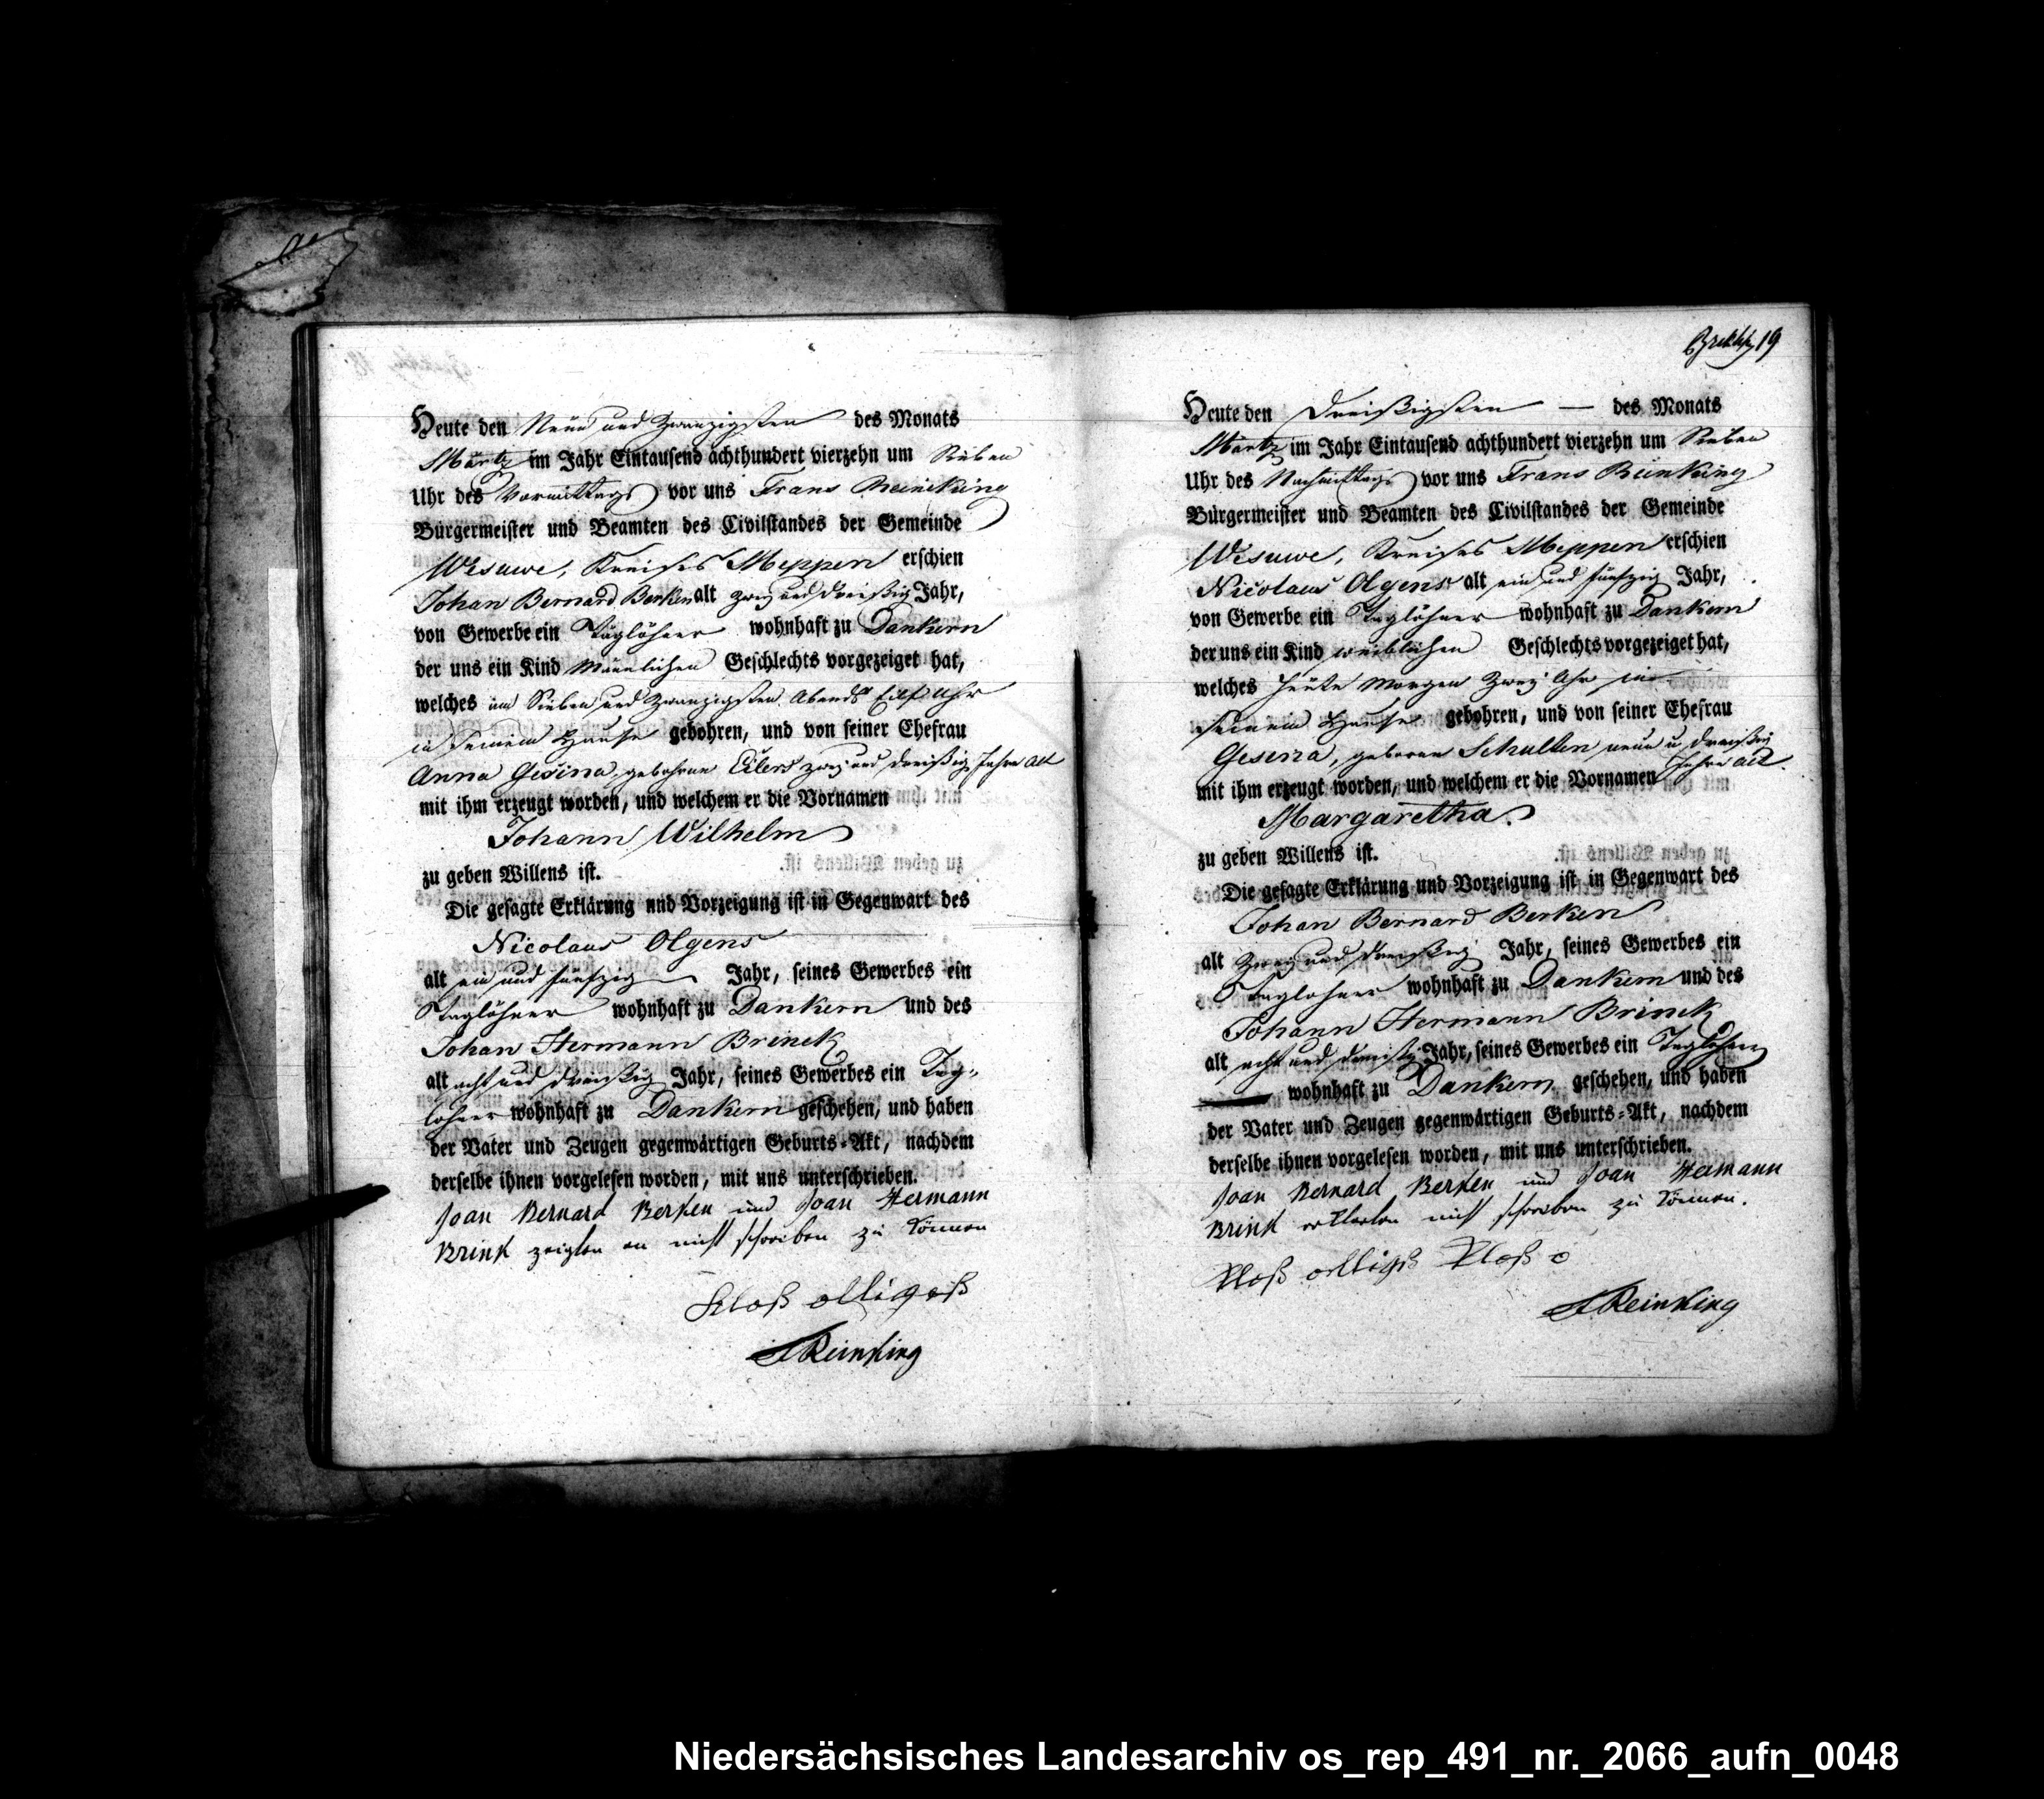 Heute den Neun und Zwanzigsten des Monats
Märtz im Jahr Eintausend achthundert vierzehn um Sieben
Uhr des Vormittags vor uns Frans Reinking
Bürgermeister und Beamten des Civilstandes der Gemeinde
Wesuwe, Kreises Meppen erschien
Johan Bernard Berken alt zwey und dreißig Jahr,
von Gewerbe ein Taglöhner wohnhaft zu Dankern
der uns ein Kind männlichen Geschlechts vorgezeiget hat,
welches im Sieben und Zwanzigsten Abends Eilf Uhr
in seinem Hause gebohren, und von seiner Ehefrau
Anna Gesina, gebohrne Eilers zwey und dreißig Jahre alt
mit ihm erzeugt worden, und welchem er die Vornamen
Johann Wilhelm
zu geben Willens ist.
Die gesagte Erklärung und Vorzeigung ist in Gegenwart des
Nicolaus Olgens
alt ein und fünfzig Jahr, seines Gewerbes ein
Taglöhner wohnhaft zu Dankern und des
Johan Hermann Brinck
alt acht und dreißig Jahr, seines Gewerbes ein Tag-
löhner wohnhaft zu Dankern geschehen, und haben
der Vater und Zeugen gegenwärtigen Geburts-Akt, nachdem
derselbe ihnen vorgelesen worden, mit uns unterschrieben.
Joan Bernard Berken und Joan Hermann
Brink zeigten an nicht schreiben zu können
FReinking
19
Heute den Dreißigsten — des Monats
Märtz im Jahr Eintausend achthundert vierzehn um Sieben
Uhr des Nachmittags vor uns Frans Reinking
Bürgermeister und Beamten des Civilstandes der Gemeinde
Wesuwe, Kreises Meppen erschien
Nicolaus Olgens alt ein und fünfzig Jahr,
von Gewerbe ein Taglöhner wohnhaft zu Dankern
der uns ein Kind weiblichen Geschlechts vorgezeiget hat,
welches heute Morgen Zwey Uhr in
seinem Hause gebohren, und von seiner Ehefrau
Gesina, geboren Schulten neun u dreißig
Jahre alt
mit ihm erzeugt worden, und welchem er die Vornamen
Margaretha.
zu geben Willens ist.
Die gesagte Erklärung und Vorzeigung ist in Gegenwart des
Johan Bernard Berken
alt zwey und dreißig Jahr, seines Gewerbes ein
Taglöhner wohnhaft zu Dankern und des
Johann Hermann Brinck
alt acht und dreißig Jahr, seines Gewerbes ein Taglöhner
wohnhaft zu Dankern geschehen, und haben
der Vater und Zeugen gegenwärtigen Geburts-Akt, nachdem
derselbe ihnen vorgelesen worden, mit uns unterschrieben.
Joan Bernard Berken und Joan Hermann
Brink erklärten nicht schreiben zu können.
FReinking
Niedersächsisches Landesarchiv os_rep_491_nr._2066_aufn_0048